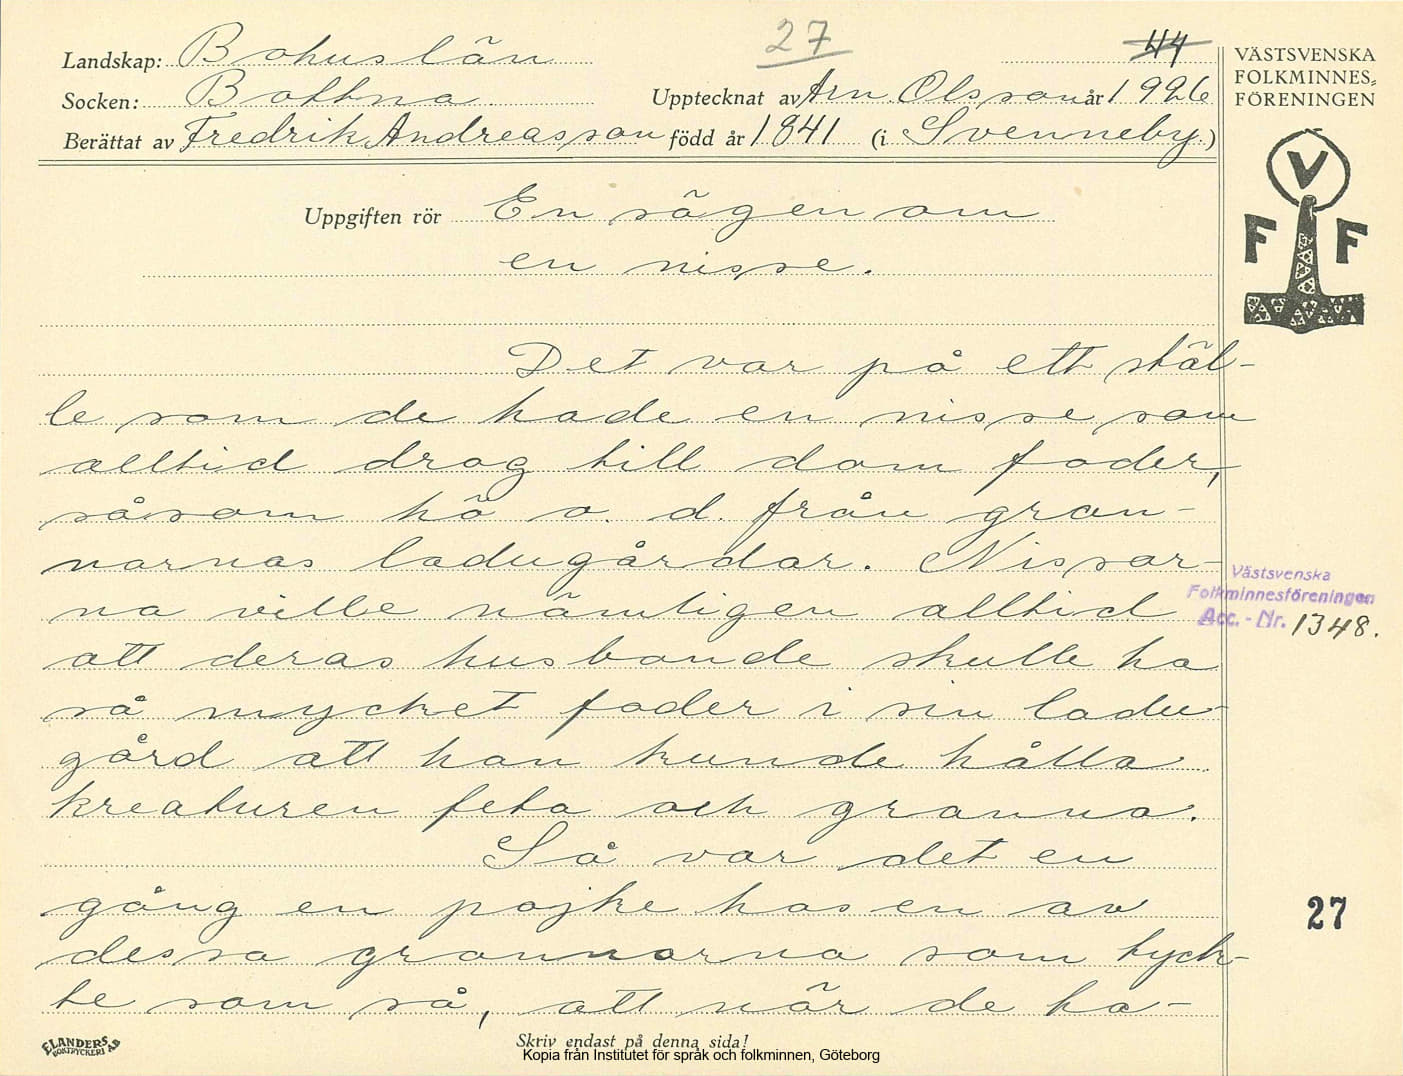 27
44
Landskap: Bohuslän
Socken: Bottna Upptecknat av Arn. Olsson år 1926
Berättat av Fredrik Andreasson född år 1841 (i Svenneby.)
VÄSTSVENSKA
FOLKMINNES=
FÖRENINGEN
V
F F
Uppgiften rör En sägen om
en nisse.
Det var på ett stäl-
le som de hade en nisse som
alltid drog till dom foder,
såsom hö o. d. från gran-
narnas ladugårdar. Nissar-
na ville nämligen alltid
att deras husbonde skulle ha
så mycket foder i sin ladu-
gård att han kunde hålla
kreaturen feta och granna.
Så var det en
gång en pojke hos en av
dessa grannarna som tyck-
te som så, att när de ha-
Västsvenska
Folkminnesföreningen
Acc. - Nr. 1348.
27
ELANDERS
BOKTRYCKERI AB
Skriv endast på denna sida!
Kopia från Institutet för språk och folkminnen, Göteborg